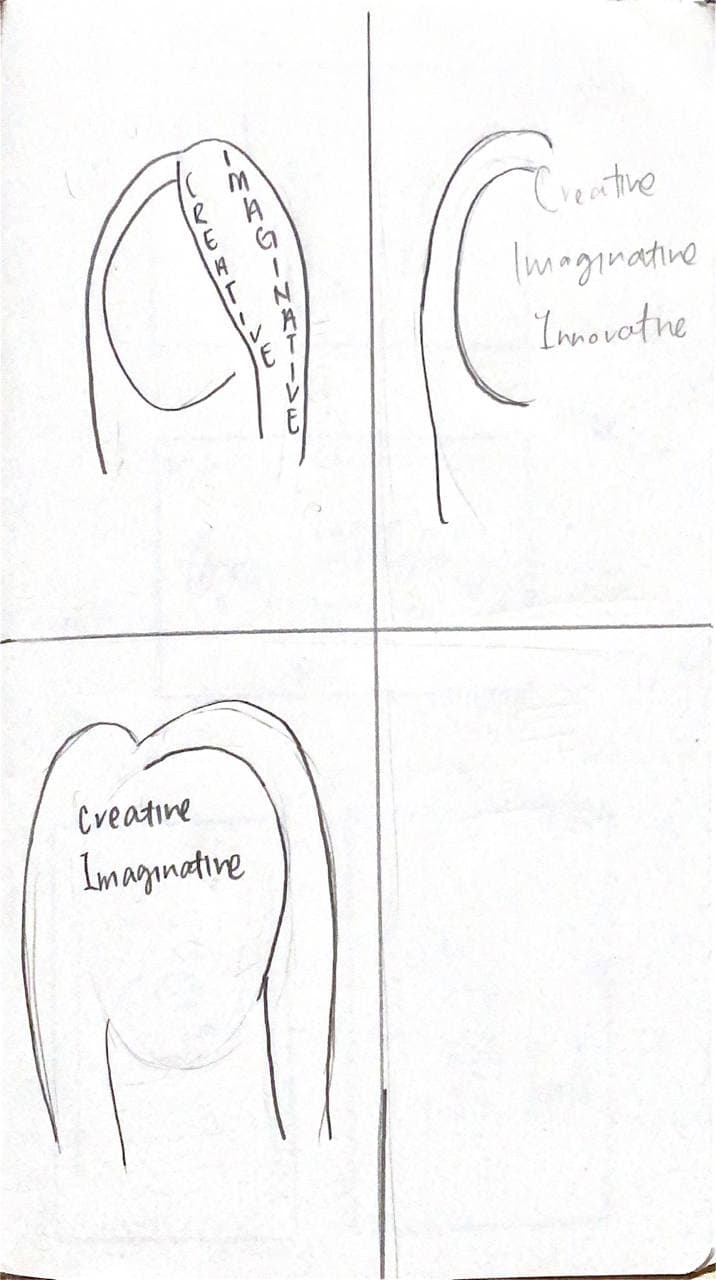 CREATIVE
IMAGINATIVE
Creative
Imaginative
Innovative
Creative
Imaginative